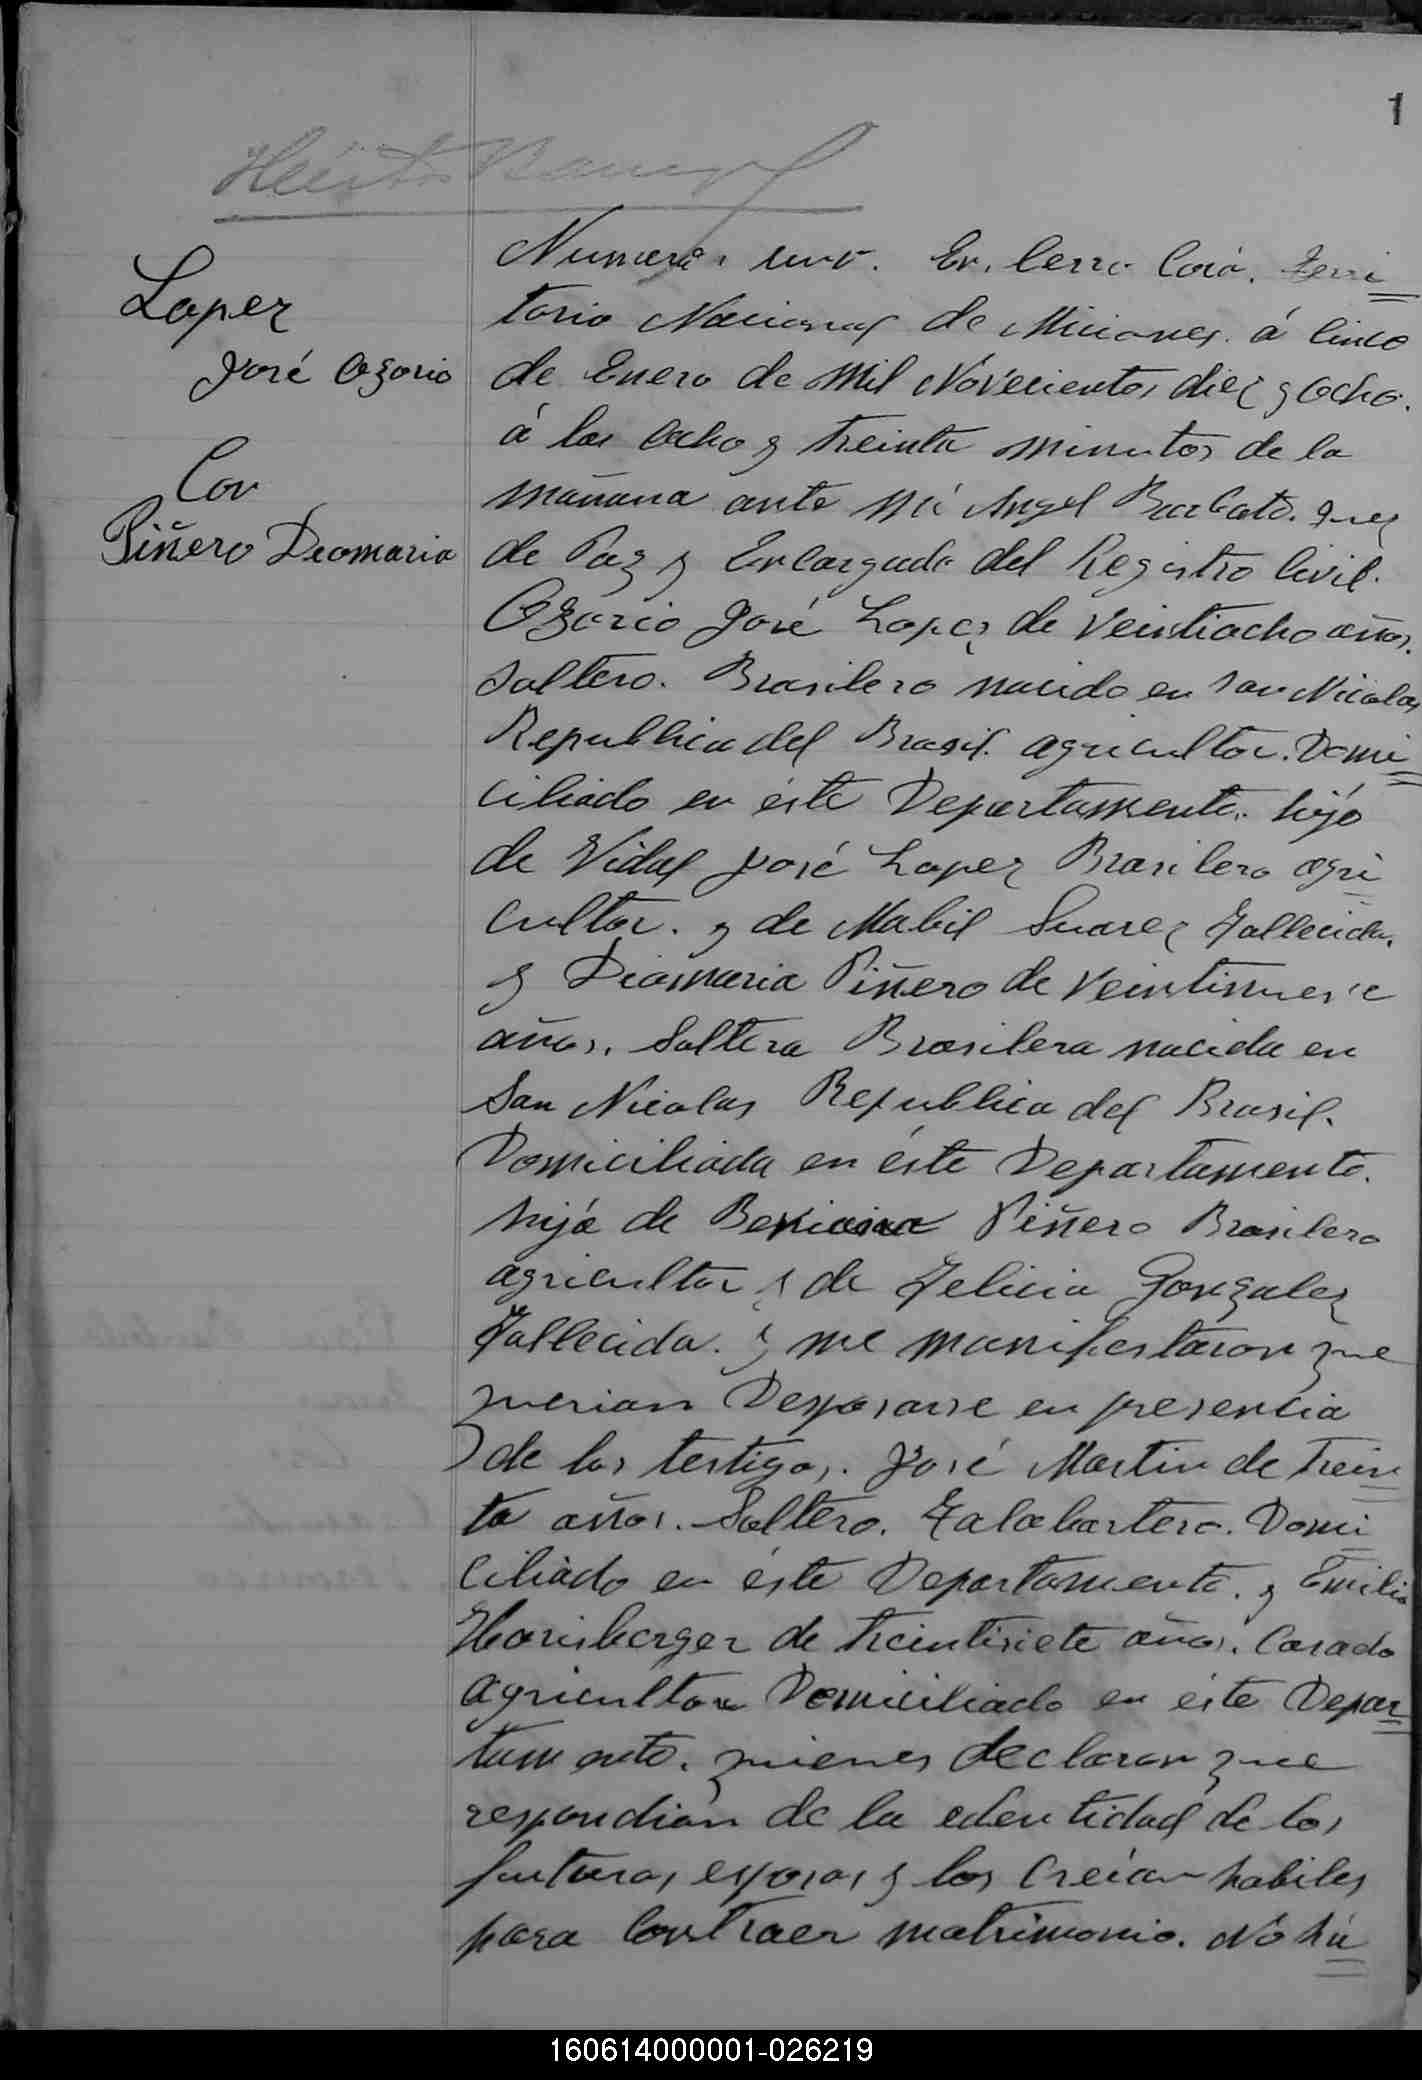 1
Lopez
José Ozorio
Con
Piñero Deomaria
Numero uno. En Cerro Corá. Terri
torio Nacional de Misiones. á cinco
de Enero de Mil Novecientos diez y Ocho.
á las Ocho y treinta minutos de la
mañana ante mi Angel Barbato. Juez
de Paz y Encargado del Registro Civil.
Ozorio José Lopez de veintiocho años.
Soltero. Brasilero nacido en San Nicolas
Republica del Brasil. agricultor. Domi
ciliado en éste Departamento. hijo
de Vidal José Lopez Brasilero agri
cultor. y de Mabil Suarez fallecida.
y Diomaria Piñero de veintinueve
años. Soltera Brasilera nacida en
San Nicolas Republica del Brasil.
Domiciliada en éste Departamento.
hija de Piñero Brasilero
agricultor y de Felicia Gonzalez
fallecida. y me manifestaron que
querian Desposarse en presencia
de los testigos. José Martin de trein
ta años. Soltero. Talabartero. Domi
ciliado en éste Departamento. y Emilio
Harisberger de treintisiete años. Casado
agricultor Domiciliado en éste Depar
tamento. quienes declaran que
respondian de la edentidad de los
futuros esposos y los creían habiles
para contraer matrimonio. No hú
160614000001-026219